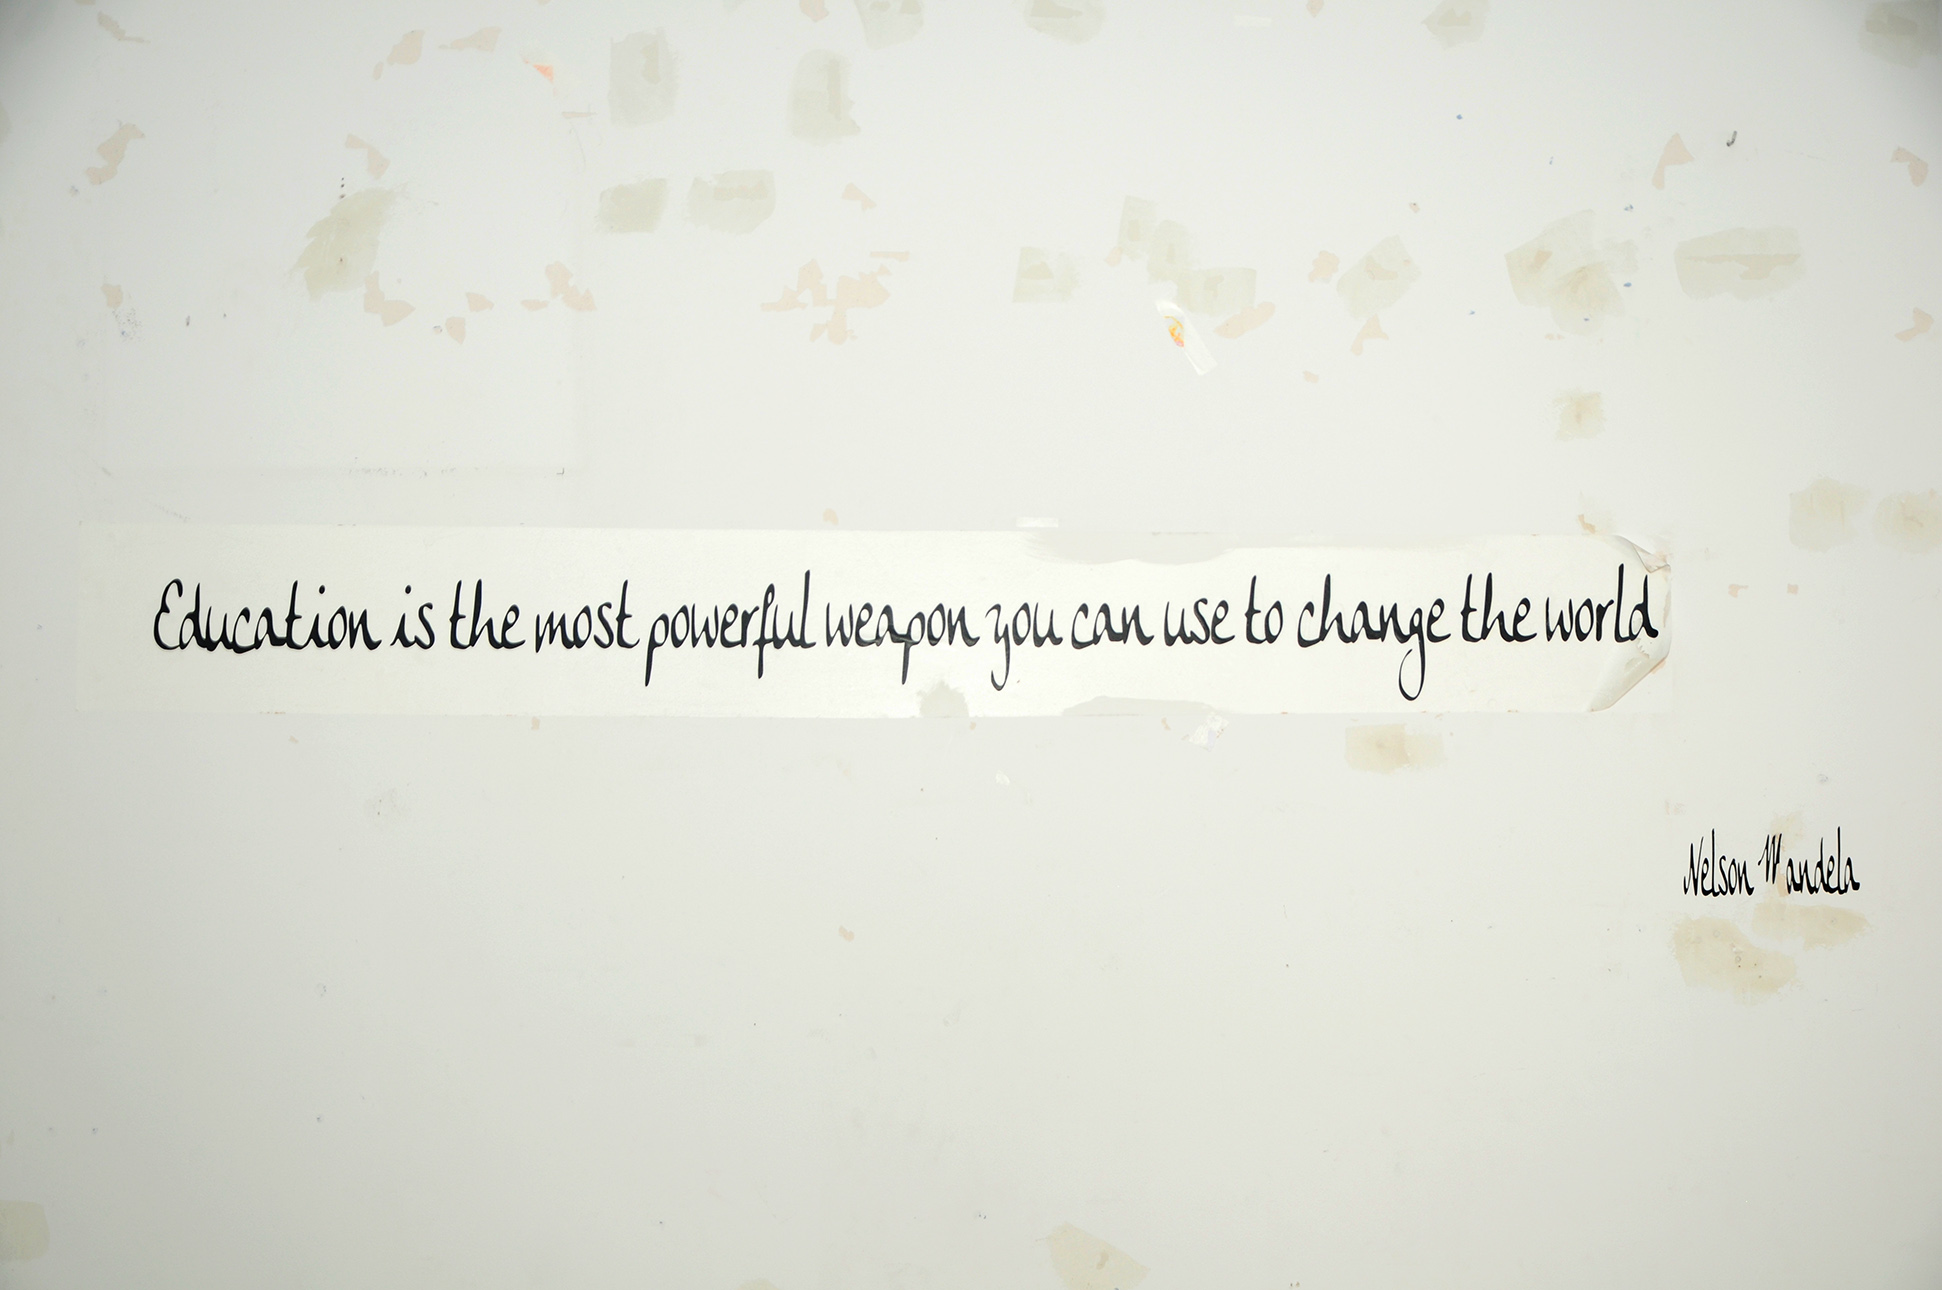 Education is the most powerful weapon you can use to change the world
Nelson Mandela